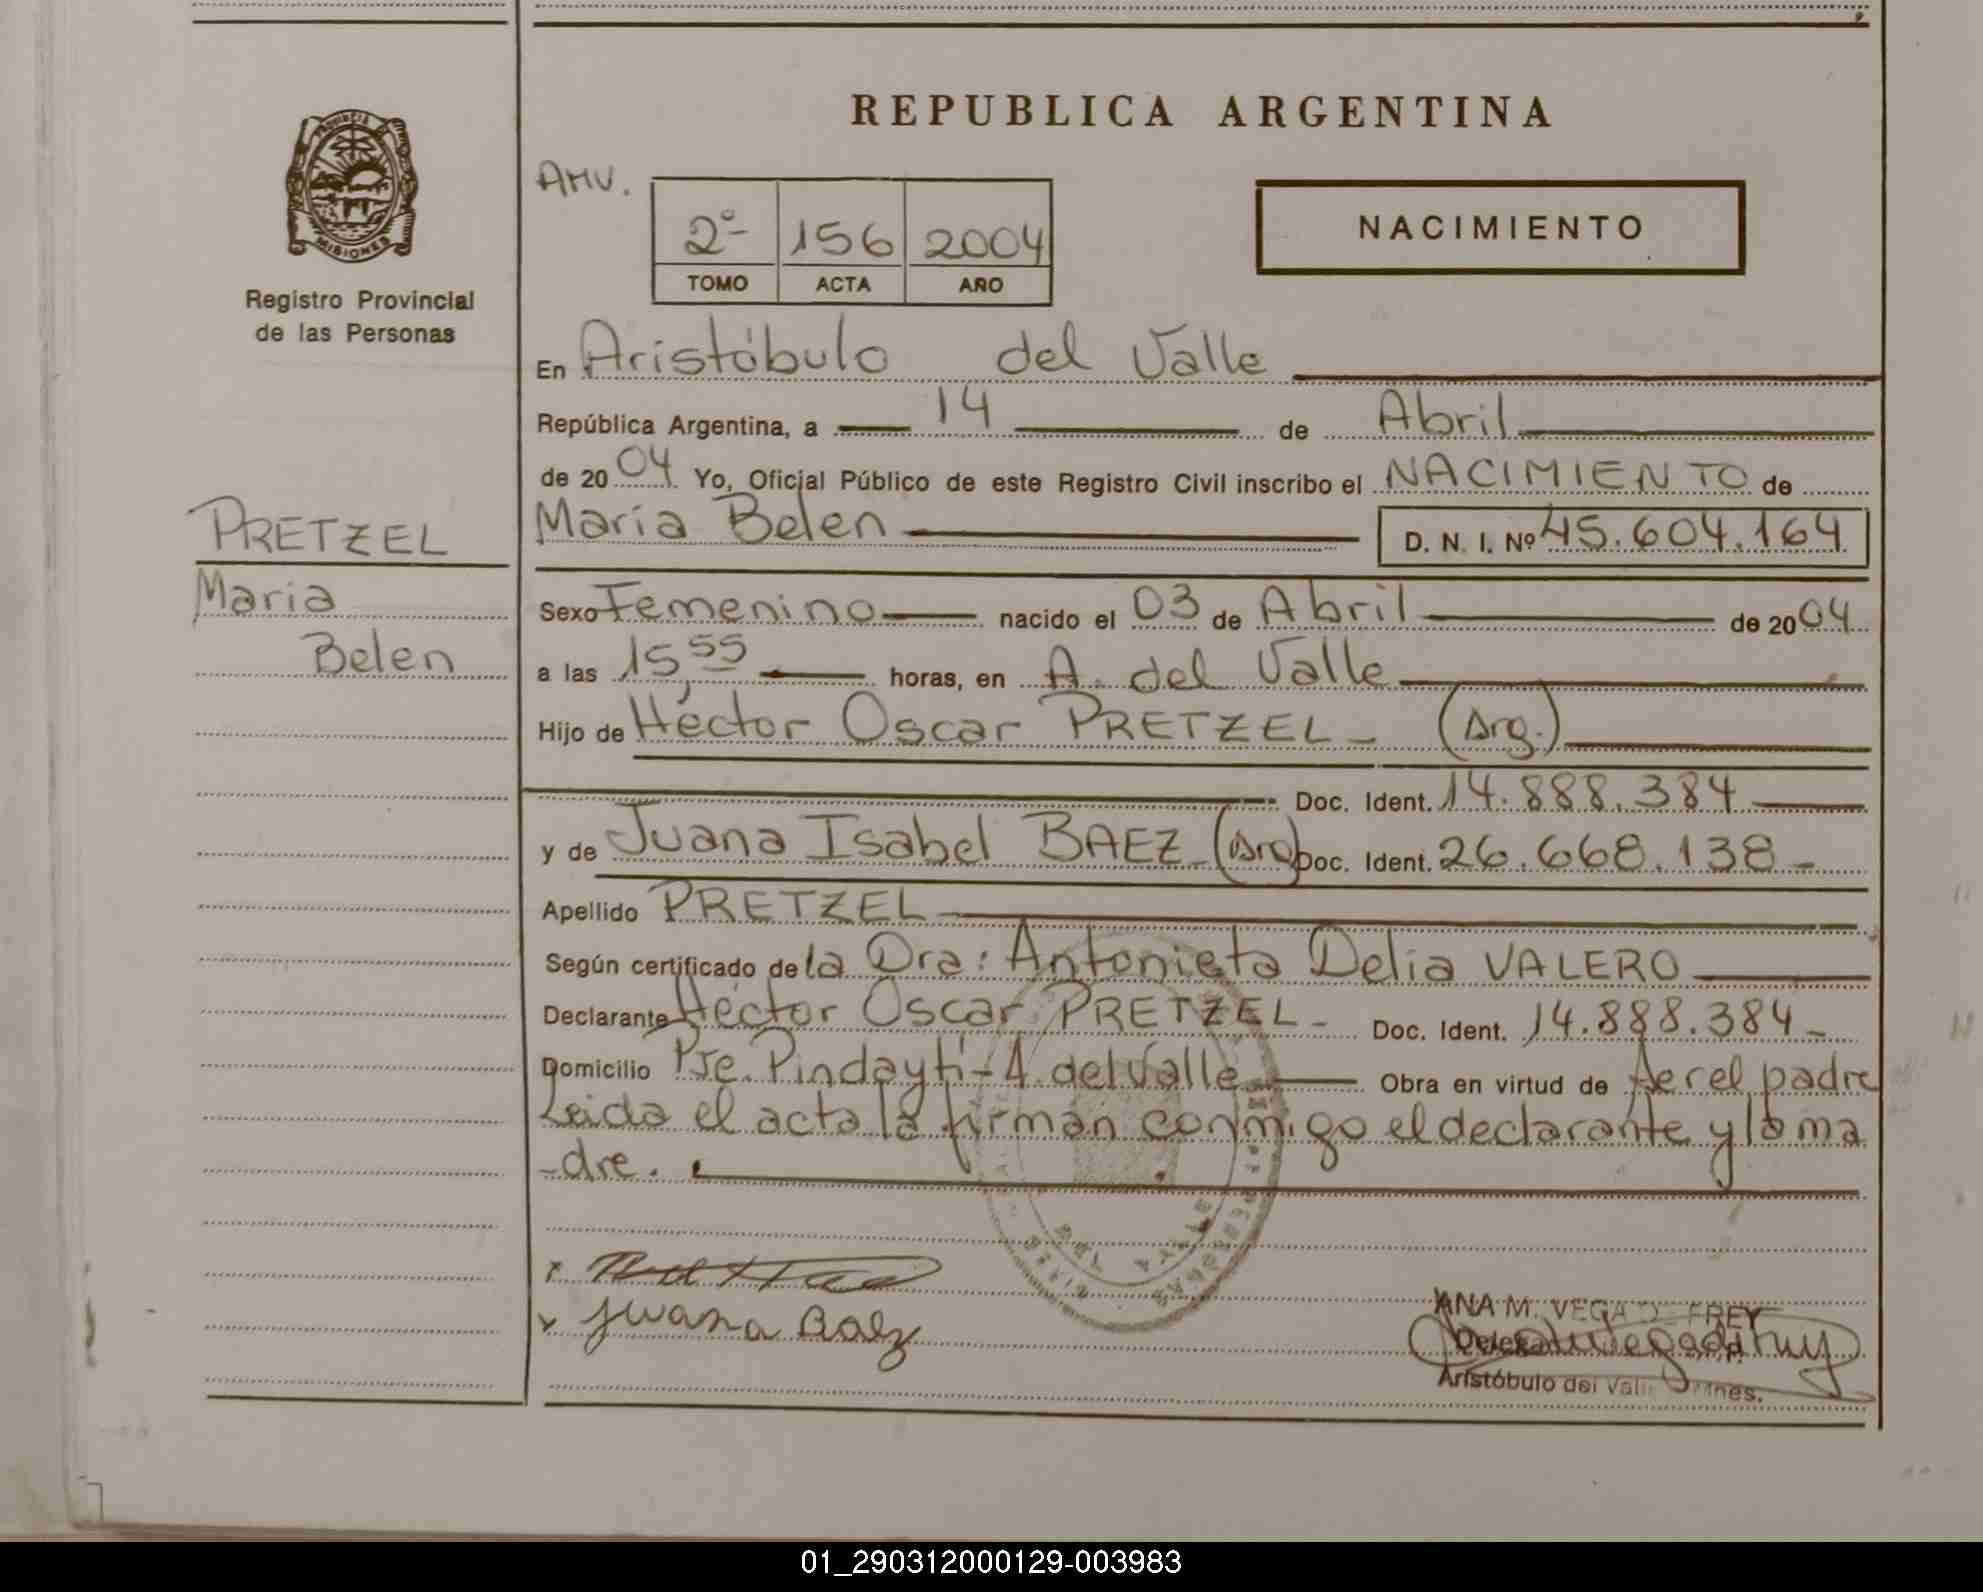 REPUBLICA ARGENTINA
PROVINCIA DE
MISIONES
Registro Provincial
de las Personas
AMV.
2º 156 2004
TOMO ACTA AÑO
NACIMIENTO
En Aristóbulo del Valle
República Argentina, a 14 de Abril
de 20 04 Yo, Oficial Público de este Registro Civil inscribo el NACIMIENTO de
PRETZEL
Maria
Belen
María Belen D. N. I. Nº 45.604.164
Sexo Femenino nacido el 03 de Abril de 20 04
a las 15,55 horas, en A. del Valle
Hijo de Héctor Oscar PRETZEL - (Arg.)
Doc. Ident. 14.888.384
y de Juana Isabel BAEZ - (Arg) Doc. Ident. 26.668.138 -
Apellido PRETZEL
Según certificado de la Dra: Antonieta Delia VALERO
Declarante Héctor Oscar PRETZEL - Doc. Ident. 14.888.384 -
Domicilio Pje. Pindaytí - A. del Valle Obra en virtud de ser el padre
Leida el acta la firman conmigo el declarante y la ma
-dre.
Juana Baez
ANA M. VEGA DE FREY
Aristóbulo del Valle Mnes.
01_290312000129-003983